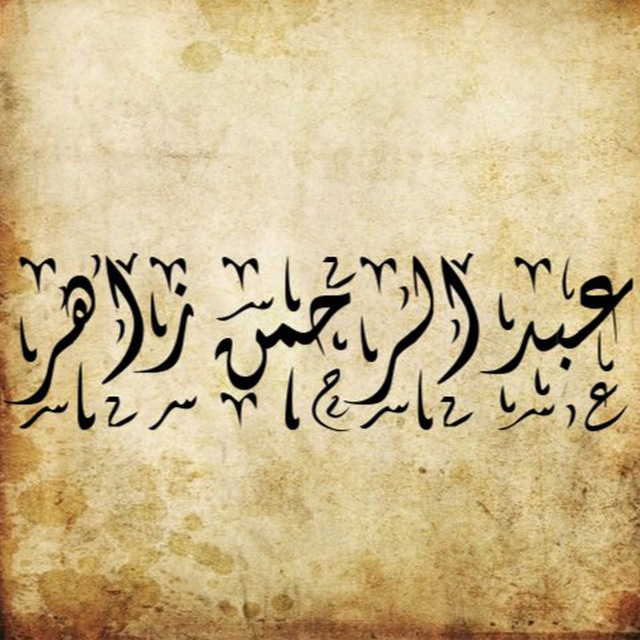 عبد الرحمن زاهر